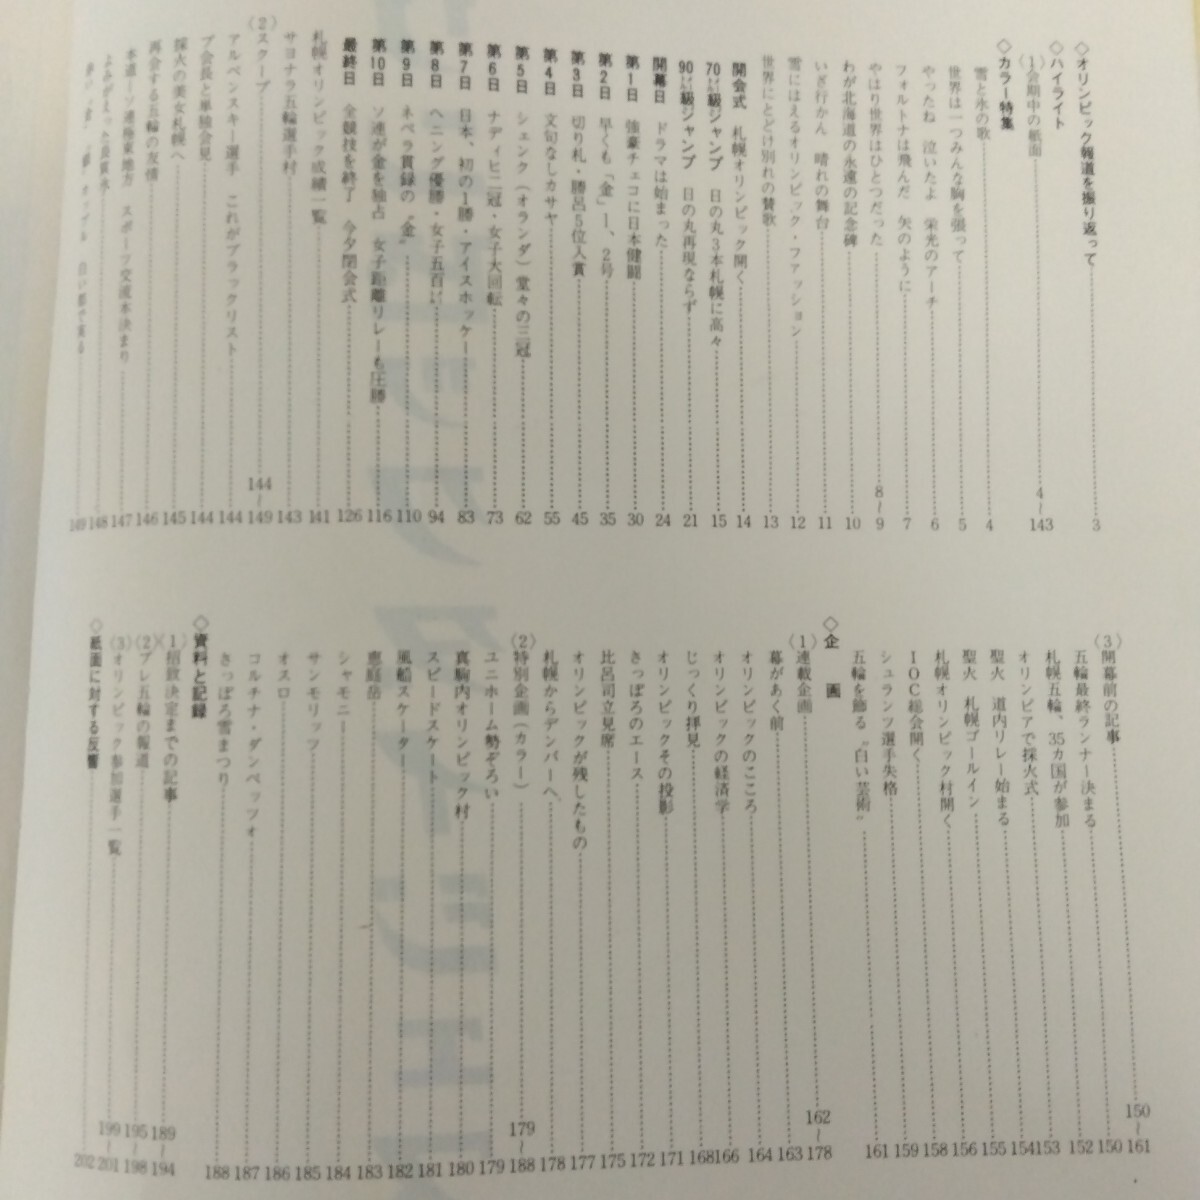 ◇オリンピック報道を振り返って 3
◇ハイライト
(1)会期中の紙面 4〜143
◇カラー特集
雪と氷の歌 4
世界は一つみんな胸を張って 5
やったね 泣いたよ 栄光のアーチ 6
フォルトナは飛んだ 矢のように 7
やはり世界はひとつだった 8〜9
わが北海道の永遠の記念碑 10
いざ行かん 晴れの舞台 11
雪にはえるオリンピック・ファッション 12
世界にとどけ別れの賛歌 13
開会式 札幌オリンピック開く 14
70㍍級ジャンプ 日の丸3本札幌に高々 15
90㍍級ジャンプ 日の丸再現ならず 21
開幕日 ドラマは始まった 24
第1日 強豪チェコに日本健闘 30
第2日 早くも「金」1、2号 35
第3日 切り札・勝呂5位入賞 45
第4日 文句なしカサヤ 55
第5日 シェンク(オランダ)堂々の三冠 62
第6日 ナディヒ二冠・女子大回転 73
第7日 日本、初の1勝・アイスホッケー 83
第8日 ヘニング優勝・女子五百㍍ 94
第9日 ネペラ貫録の“金” 110
第10日 ソ連が金を独占 女子距離リレーも圧勝 116
最終日 全競技を終了 今夕閉会式 126
札幌オリンピック成績一覧 141
サヨナラ五輪選手村 143
(2)スクープ 144〜149
アルペンスキー選手 これがブラックリスト 144
ブ会長と単独会見 144
採火の美女札幌へ 145
再会する五輪の友情 146
本道―ソ連極東地方 スポーツ交流本決まり 147
よみがえった長質氷 148
149
(3)開幕前の記事 150〜161
五輪最終ランナー決まる 150
札幌五輪、35カ国が参加 152
オリンピアで採火式 153
聖火 道内リレー始まる 154
聖火 札幌ゴールイン 155
札幌オリンピック村開く 156
IOC総会開く 158
シュランツ選手失格 159
五輪を飾る“白い芸術” 161
◇企 画
(1)連載企画 162〜178
幕があく前 163
オリンピックのこころ 164
オリンピックの経済学 166
じっくり拝見 168
オリンピックその投影 171
さっぽろのエース 172
比呂司立見席 175
オリンピックが残したもの 177
札幌からデンバーへ 178
(2)特別企画(カラー) 179〜188
ユニホーム勢ぞろい 179
真駒内オリンピック村 180
スピードスケート 181
風船スケーター 182
恵庭岳 183
シャモニー 184
サンモリッツ 185
オスロ 186
コルチナ・ダンペッツォ 187
さっぽろ雪まつり 188
◇資料と記録
(1)招致決定までの記事 189〜194
(2)プレ五輪の報道 195〜198
(3)オリンピック参加選手一覧 199〜201
◇紙面に対する反響 202